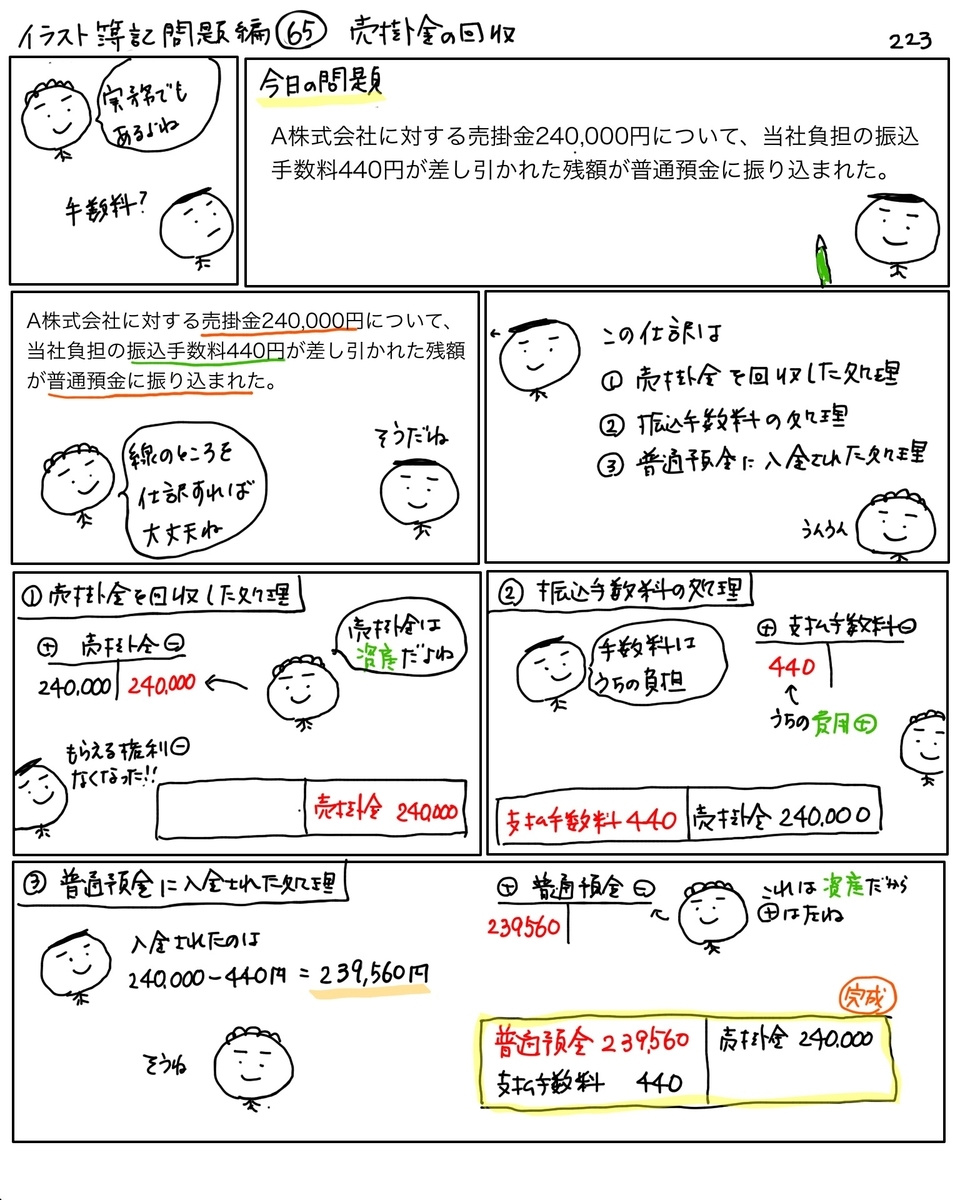 イラスト簿記問題編 65 売掛金の回収
223
実務でも
あるよね
手数料?
今日の問題
A株式会社に対する売掛金240,000円について、当社負担の振込
手数料440円が差し引かれた残額が普通預金に振り込まれた。
A株式会社に対する売掛金240,000円について、
当社負担の振込手数料440円が差し引かれた残額
が普通預金に振り込まれた。
線のところを
仕訳すれば
大丈夫ね
そうだね
この仕訳は
① 売掛金を回収した処理
② 振込手数料の処理
③ 普通預金に入金された処理
うんうん
①売掛金を回収した処理
⊕ 売掛金 ⊖
240,000 240,000 ←
売掛金は
資産だよね
もらえる権利⊖
なくなった!!
売掛金 240,000
② 振込手数料の処理
手数料は
うちの負担
⊕ 支払手数料⊖
440
↑
うちの費用⊕
支払手数料 440 売掛金 240,000
③ 普通預金に入金された処理
入金されたのは
240,000-440円 = 239,560円
そうね
⊕ 普通預金 ⊖
239560
これは資産だから
⊕はだね
完成
普通預金 239,560 売掛金 240,000
支払手数料 440